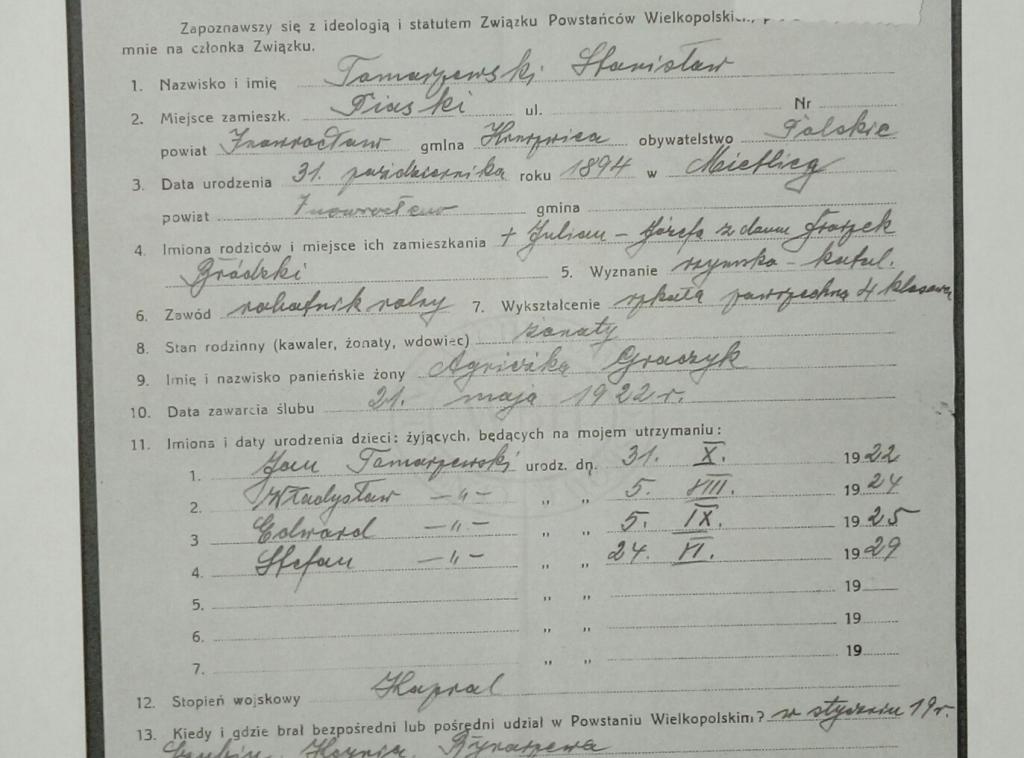 Zapoznawszy się z ideologią i statutem Związku Powstańców Wielkopolskich,
mnie na członka Związku.
1. Nazwisko i imię Tomaszewski Stanisław
2. Miejsce zamieszk. Piaski ul. Nr
powiat Inowrocław gmina Kruszwica obywatelstwo Polskie
3. Data urodzenia 31. października roku 1894 w Mietlicy
powiat Inowrocław gmina
4. Imiona rodziców i miejsce ich zamieszkania + Julian - Józefa z domu
Gródzki 5. Wyznanie rzymsko - katol.
6. Zawód robotnik rolny 7. Wykształcenie szkoła powszechna 4 klasowa
8. Stan rodzinny (kawaler, żonaty, wdowiec) żonaty
9. Imię i nazwisko panieńskie żony Agnieszka Graczyk
10. Data zawarcia ślubu 21. maja 1922 r.
11. Imiona i daty urodzenia dzieci: żyjących, będących na mojem utrzymaniu:
1. Jan Tomaszewski urodz. dn. 31. X. 1922
2. Władysław -"- " " 5. VIII. 1924
3 Edward -"- " " 5. IX. 1925
4. Stefan -"- " " 24. VI. 1929
5. " " 19
6. " " 19
7. " " 19
12. Stopień wojskowy Kapral
13. Kiedy i gdzie brał bezpośredni lub pośredni udział w Powstaniu Wielkopolskim? w styczniu 19 r.
Kcynia, Rynarzewa